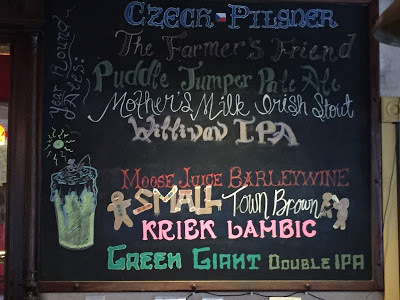 Year Round
Ales:
Czech Pilsner
The Farmer's Friend
Puddle Jumper Pale Ale
Mother's Milk Irish Stout
IPA
Moose Juice Barleywine
SMALL Town Brown
KRIEK LAMBIC
GREEN GIANT DOUBLE IPA